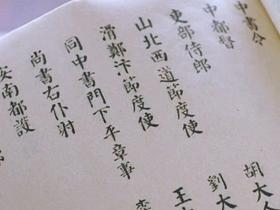 中書令
中都督
吏部侍郎
山北西道節度使
滑鄭汴節度使
同中書門下平章事
尚書右仆射
安南都護
胡大
劉大
王